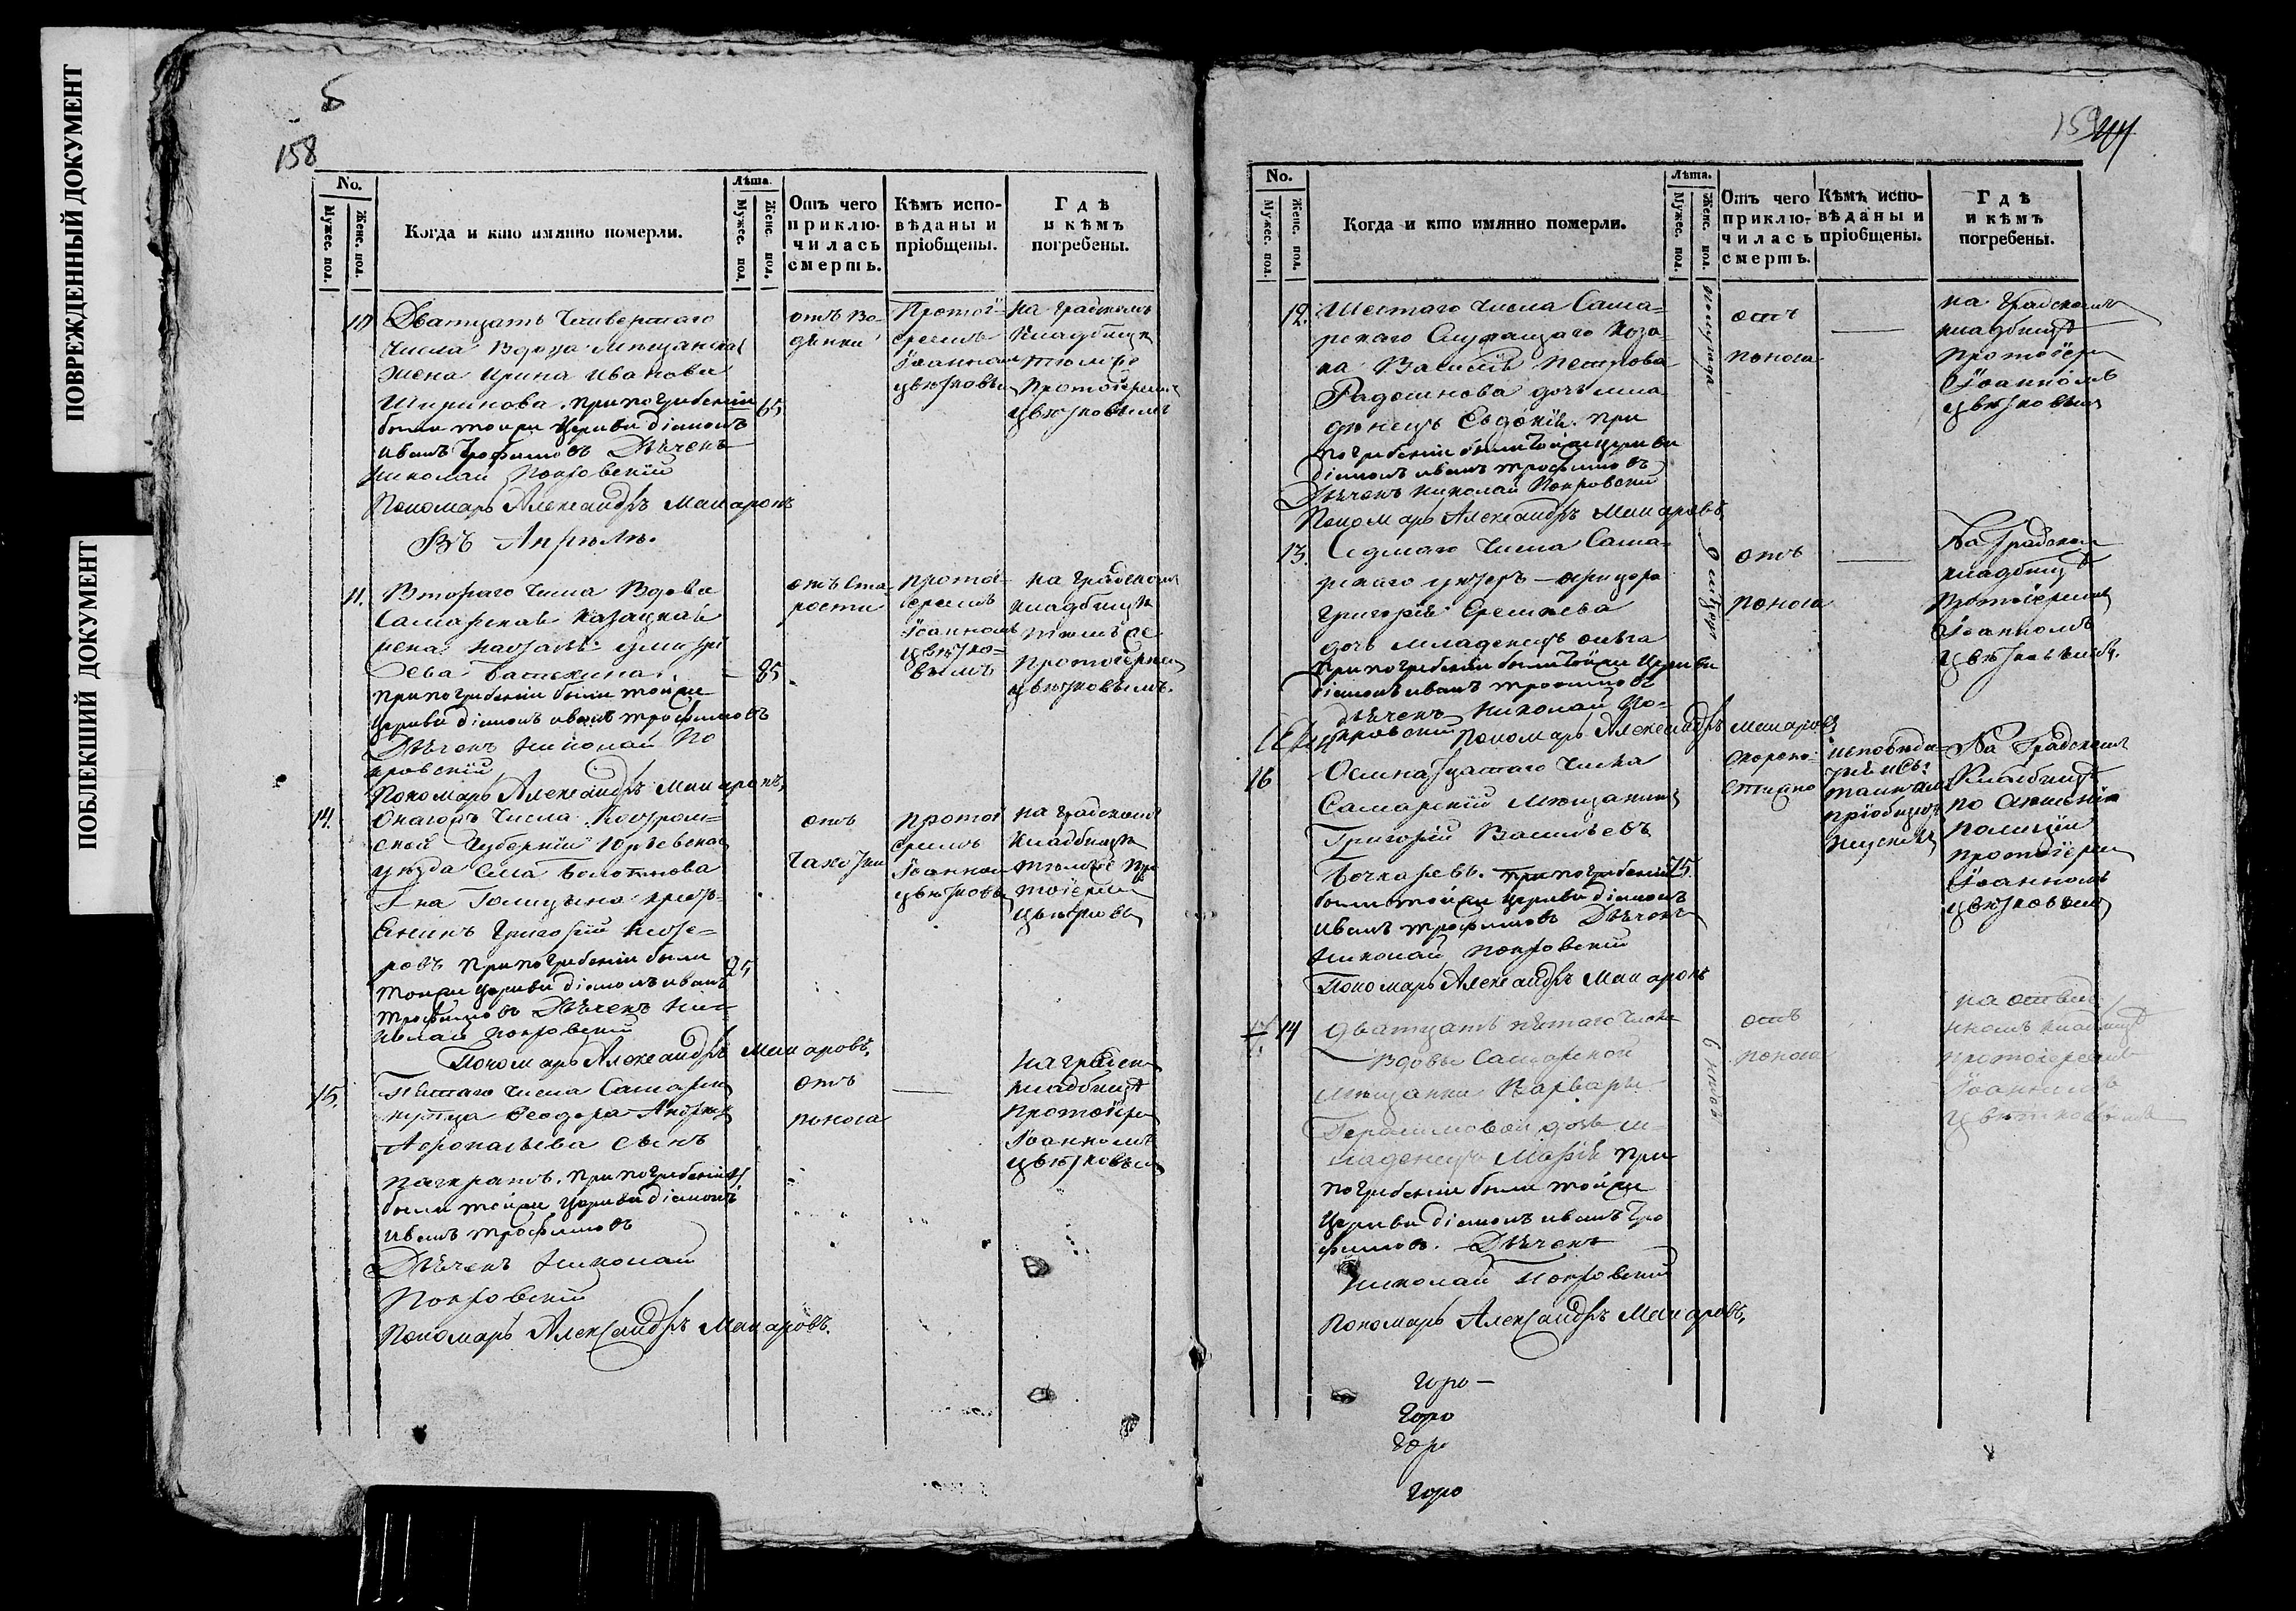 ПОВРЕЖДЕННЫЙ ДОКУМЕНТ
ПОБЛЕКШИЙ ДОКУМЕНТ
158
No.
Мужес. пол.
Женс. пол.
Когда и кто имянно померли.
Лѣта.
Мужес. пол.
Женс. пол.
Отъ чего
приклю-
чилась
смерть.
Кѣмъ испо-
вѣданы и
пріобщены.
Гдѣ
и кѣмъ
погребены.
10
Дватцать Четвертаго
числа Вдова Мѣщанская
жена Ирина Иванова
Ширинова. при погребеніи
были тойже Церкви діаконъ
иванъ Трофимовъ Дьячекъ
Николай Покровскій
Пономарь Александръ Макаровъ
65
отъ во-
дянки
Протоі-
ереемъ
Іоанномъ
Цвѣтковы
на градскомъ
кладбищѣ
тѣмже
Протоіерее
Цвѣтковымъ
Въ Апрѣлѣ.
11.
Втораго числа Вдова
Самарская казацкая
жена
при погребеніи были тойже
Церкви діаконъ иванъ трофимовъ
Дьячекъ Николай По
кровскій
Пономарь Александръ Макаровъ,
85
отъ ста-
рости
протоі-
ереемъ
Іоанномъ
Цвѣтко-
вымъ
на градскомъ
кладбищѣ
тѣмъ же
протоіерее
Цвѣтковымъ.
14.
Онагожъ числа Костром-
ской Губерніи Юрьевскаго
уѣзда Села
Г-на Голицына крестья-
Григорій
ровъ при погребеніи были
тойже Церкви діаконъ иванъ
трофимовъ Дьячекъ Ни-
колай покровскій
Пономарь Александръ Макаровъ,
25
отъ
чахотки
протоі
ереемъ
Іоанном
Цвѣтковы
на градскомъ
кладбищѣ
тѣмже про
тоіерее
Цвѣтковы
15.
Пятаго числа Самарск
купца Феодора Андрее
сынъ
Панкратъ. при погребеніи
были тойже Церкви діаконъ
иванъ трофимовъ
Дьячекъ Николай
Покровскій
Пономарь Александръ Макаровъ.
отъ
поноса
на градск
кладбищѣ
Протоіере
Іоанномъ
Цвѣтковы
159
No.
Мужес. пол.
Женс. пол.
Когда и кто имянно померли.
Лѣта.
Мужес. пол.
Женс. пол.
Отъ чего
приклю-
чилась
смерть.
Кѣмъ испо-
вѣданы и
пріобщены.
Гдѣ
и кѣмъ
погребены.
12.
Шестаго числа Сама-
рскаго Служащаго Коза-
ка Василія Петрова
Радошнова дочь мла-
дѣнецъ Евдокія. при
погребеніи были тойже церкви
діаконъ иванъ трофимовъ
Дьячекъ Николай Покровскій
Пономарь Александръ Макаровъ
полугода
отъ
поноса
на градскомъ
кладбищѣ
протоіере
Іоанномъ
Цвѣтковы
13.
Седмаго числа Сама-
рскаго унтеръ-офицера
Григорія Ерешкева
дочь младенецъ ольга
при погребеніи были тойже Церкви
діаконъ иванъ трофимовъ
дьячекъ Николай По-
кровскій Пономарь Александръ Макаровъ
отъ
поноса
На Градском
кладбищѣ
Протоіереем
Іоанномъ
Цвѣтковымъ.
16
Осмнатцатаго числа
Самарскій мѣщанинъ
Григорій Васильевъ
Бочкаревъ. при погребеніи
были тойже Церкви діаконъ
иванъ трофимовъ Дьячекъ
Николай покровскій
Пономарь Александръ Макаровъ
75
скоропо-
стижно
На Градскомъ
Кладбищѣ
по
полиціи
протоіере
Іоанномъ
Цвѣтковым
14
Дватцать пятаго числа
Вдовы Самарской
мѣщанки Варвары
Герасимовой дочь м-
ладенецъ Марія при
погребеніи были тойже
Церкви діаконъ иванъ Тро
фимовъ. Дьячекъ
Николай Покровскій
Пономарь Александръ Макаровъ,
отъ
поноса
кладбищѣ
протоіереемъ
Іоанномъ
Цвѣтковымъ
Горо-
Горо
Горо
Горо